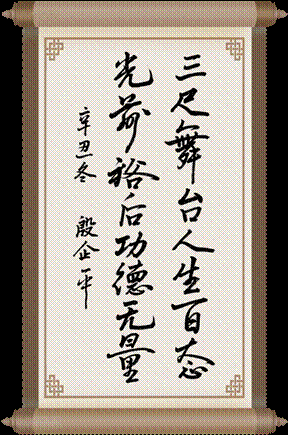 三尺舞台人生百态
光前裕后功德无量
辛丑冬 殷企平